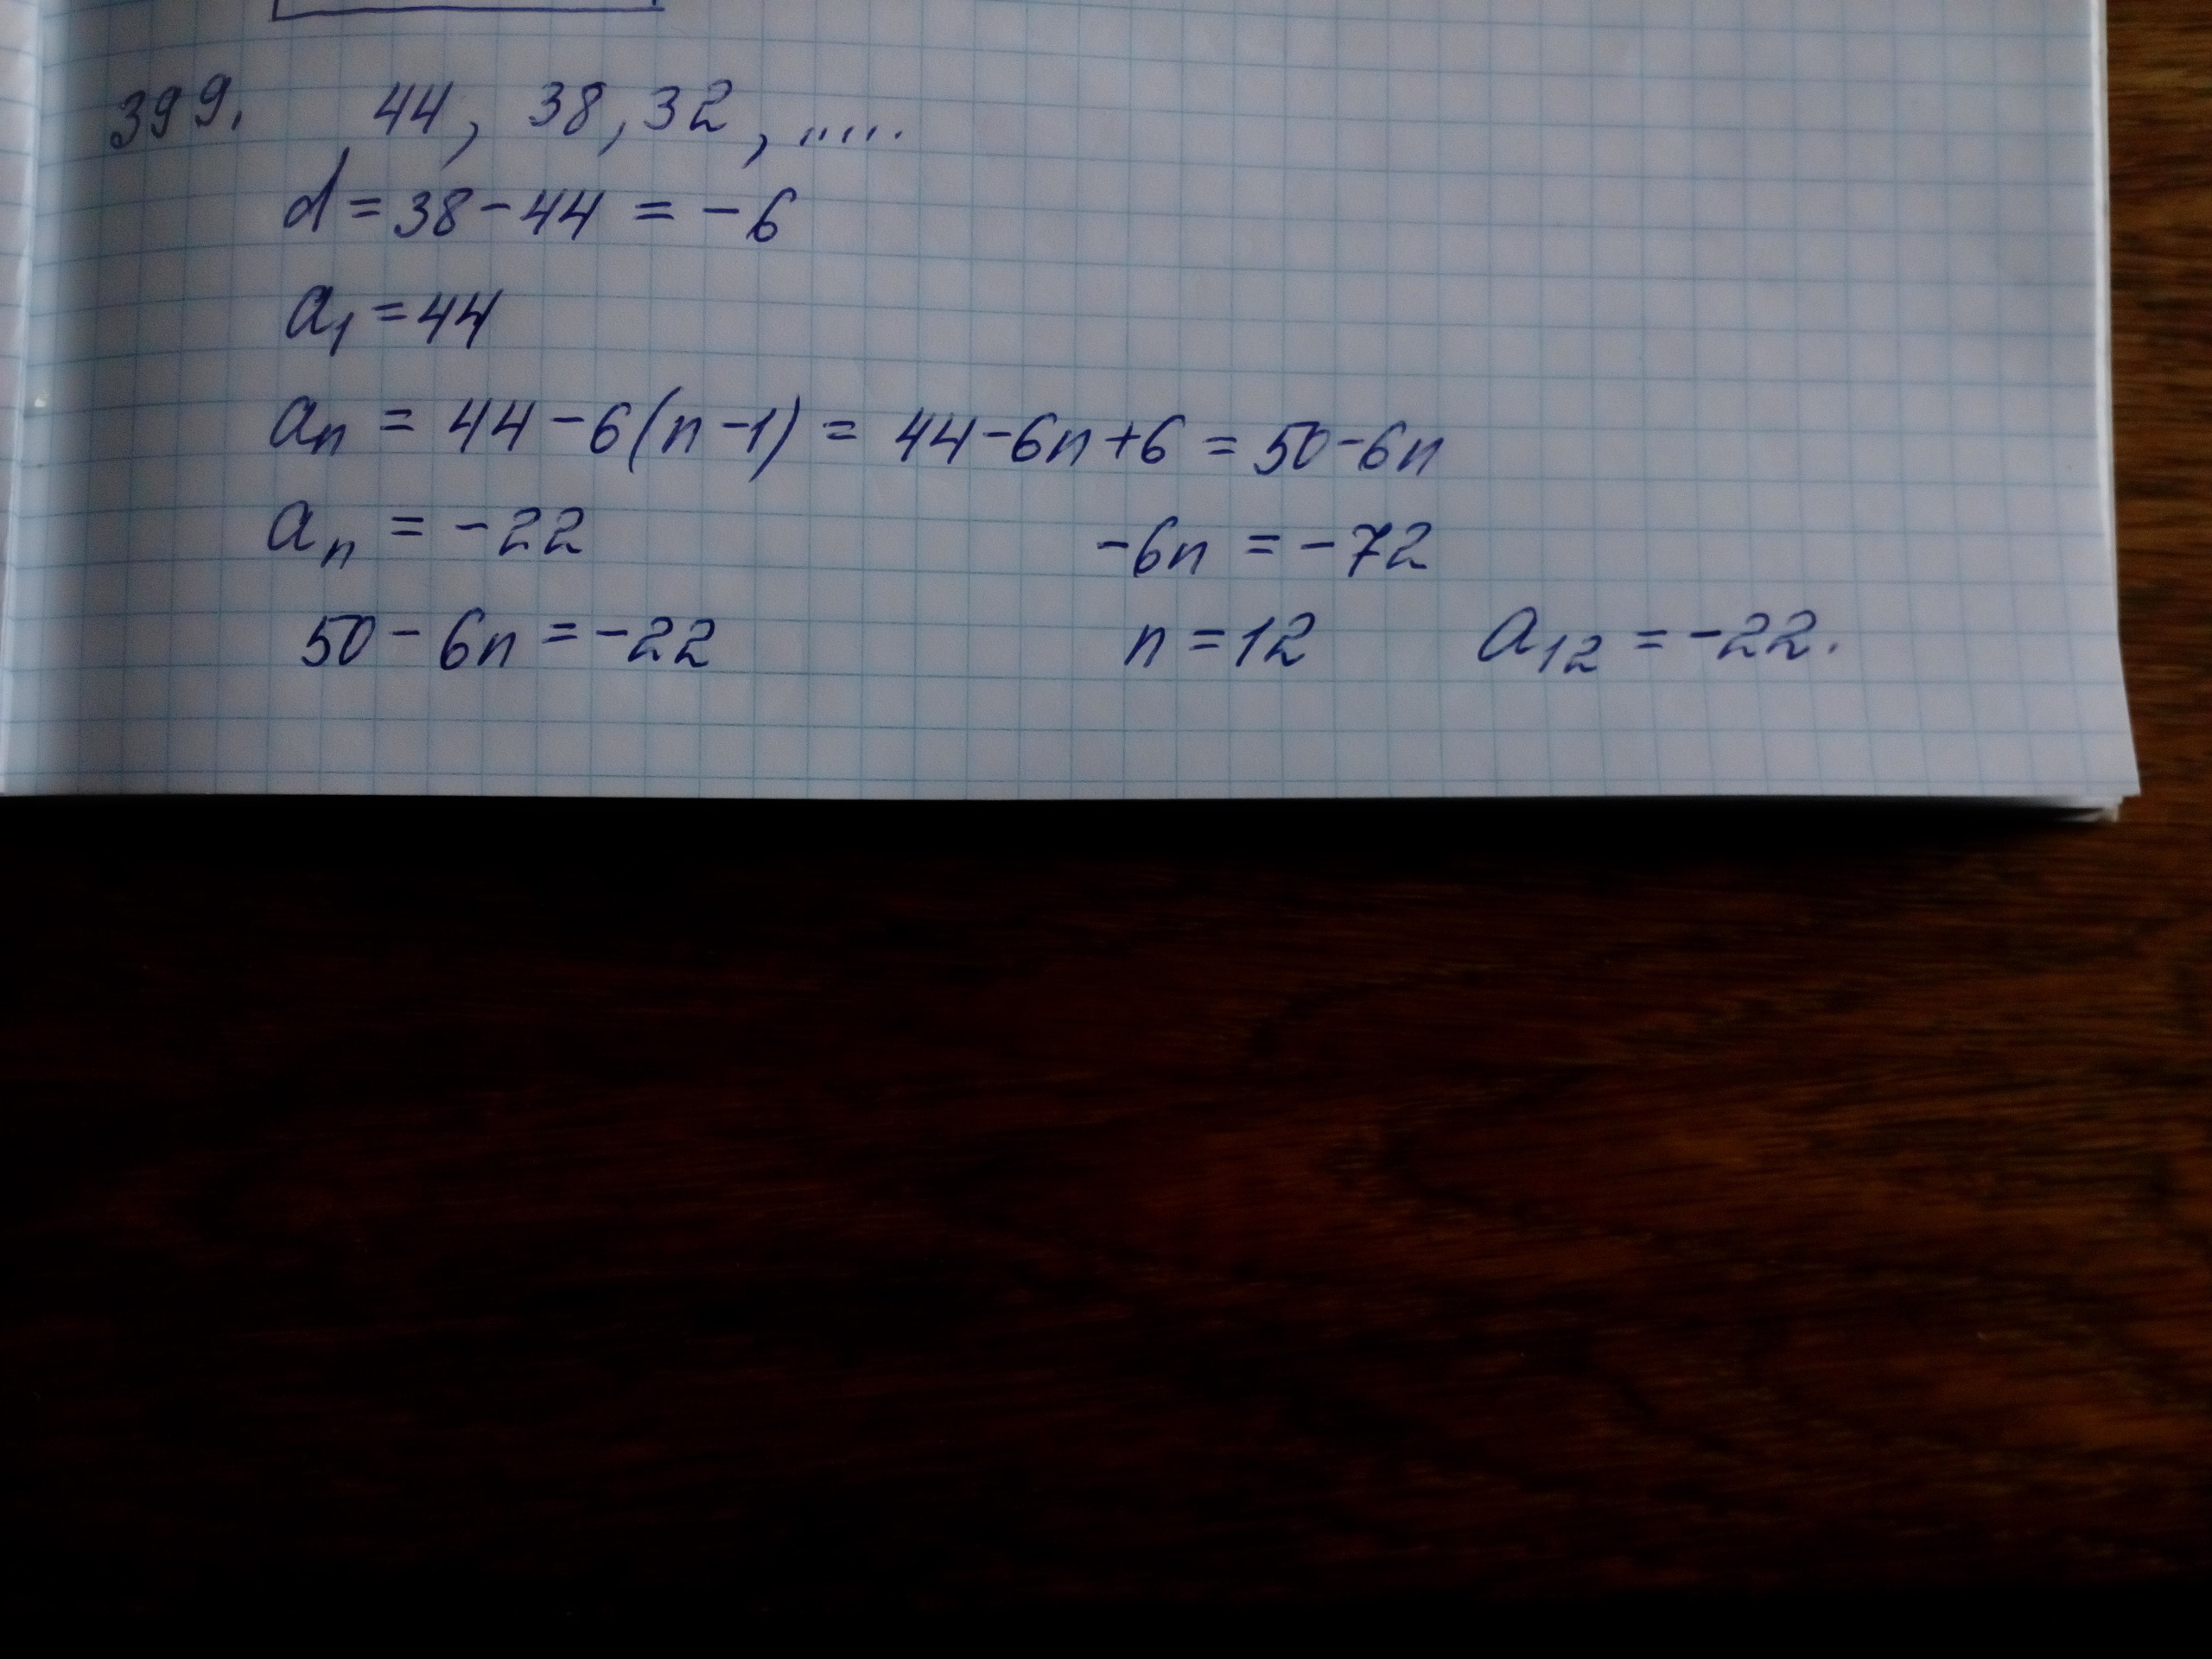 399. 44, 38, 32, .....
d = 38 - 44 = -6
a₁ = 44
aₙ = 44 - 6(n - 1) = 44 - 6n + 6 = 50 - 6n
aₙ = -22
-6n = -72
50 - 6n = -22
n = 12 a₁₂ = -22.